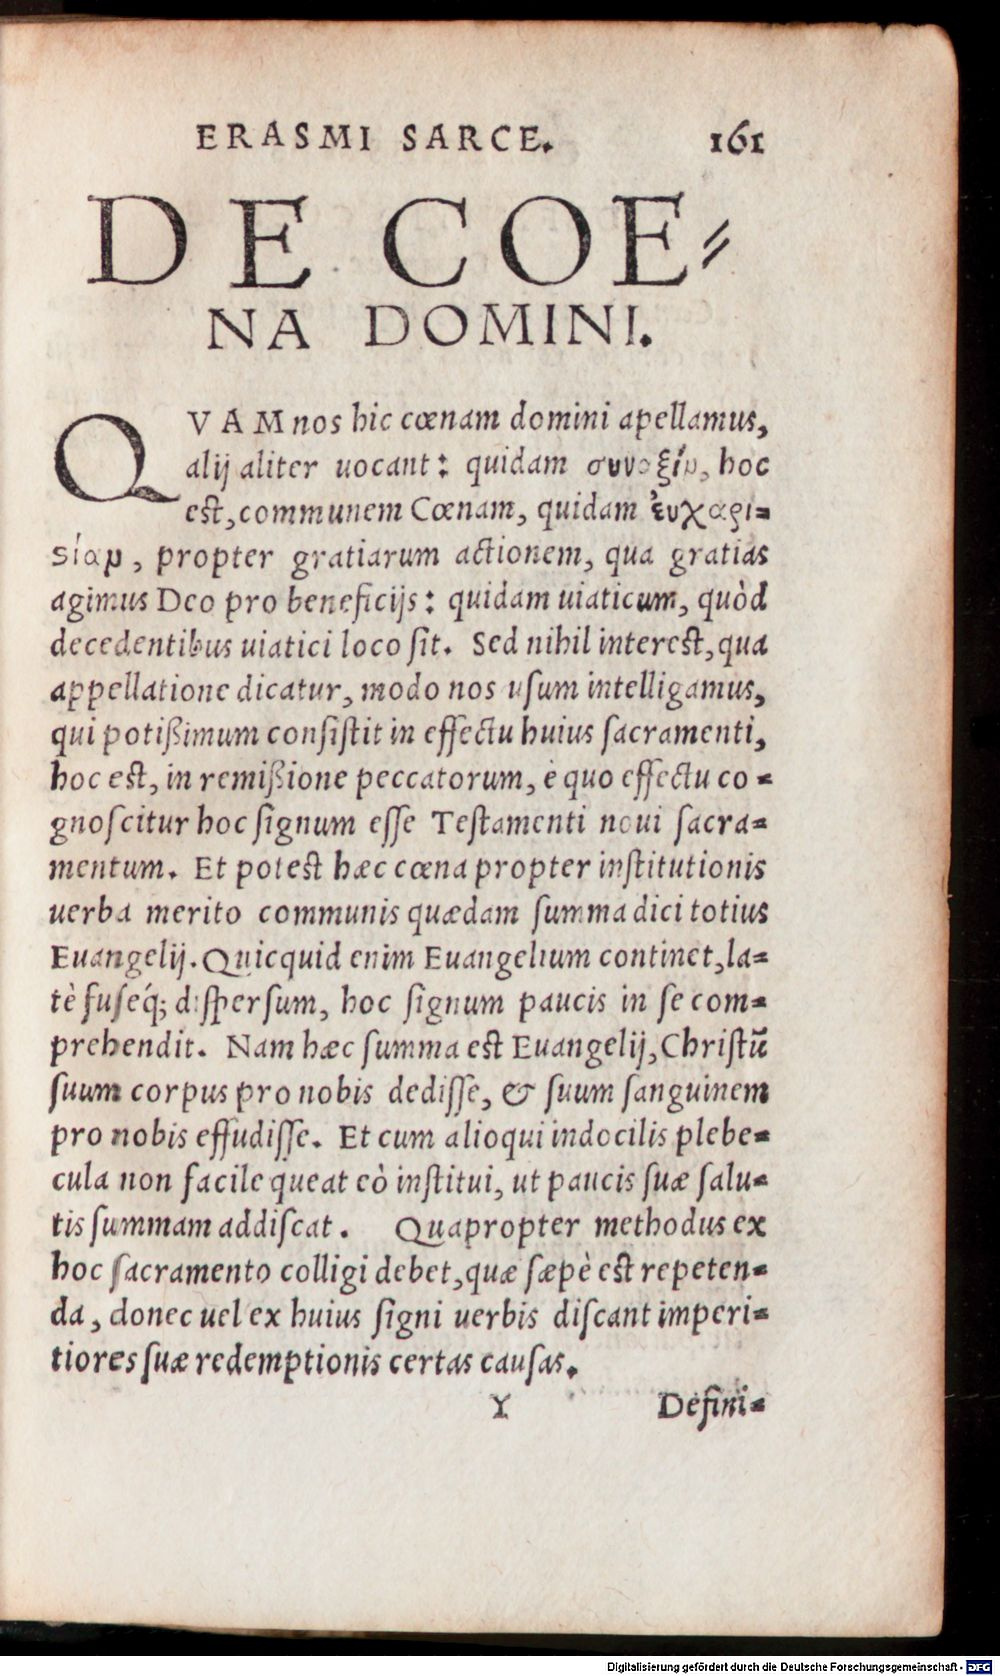 ERASMI SARCE. 161
DE COE⸗
NA DOMINI.
QVAM nos hic cœnam domini apellamus,
alij aliter uocant: quidam hoc
est, communem Cœnam, quidam ἐυχαρι⸗
ςίαν, propter gratiarum actionem, qua gratias
agimus Deo pro beneficijs: quidam uiaticum, quòd
decedentibus uiatici loco ſit. Sed nihil interest, qua
appellatione dicatur, modo nos uſum intelligamus,
qui potißimum conſiſtit in effectu huius ſacramenti,
hoc est, in remißione peccatorum, è quo effectu co⸗
gnoſcitur hoc ſignum eſſe Teſtamenti noui ſacra⸗
mentum. Et potest hæc cœna propter inſtitutionis
uerba merito communis quædam ſumma dici totius
Euangelij. Quicquid enim Euangelium continet, la⸗
tè fuſeq́; diſperſum, hoc ſignum paucis in ſe com⸗
prehendit. Nam hæc ſumma est Euangelij, Chriſtũ
ſuum corpus pro nobis dediſſe, & ſuum ſanguinem
pro nobis effudiſſe. Et cum alioqui indocilis plebe⸗
cula non facile queat eò inſtitui, ut paucis ſuæ ſalu⸗
tis ſummam addiſcat. Quapropter methodus ex
hoc ſacramento colligi debet, quæ ſæpè est repeten⸗
da, donec uel ex huius ſigni uerbis diſcant imperi⸗
tiores ſuæ redemptionis certas cauſas.
Y Defini⸗
Digitalisierung gefördert durch die Deutsche Forschungsgemeinschaft - DFG